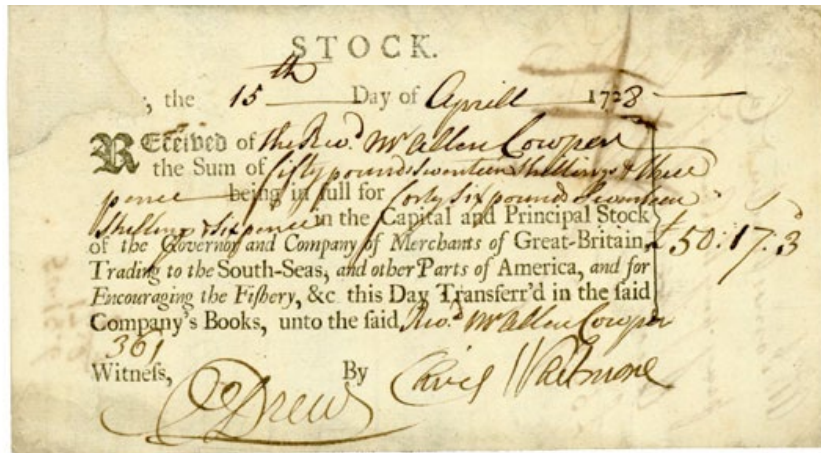 STOCK.
, the 15th Day of Aprill 1728
Received of the Revd. Mr Allen Cowper
the Sum of fifty pounds Seventeen Shillings & three
pence being in full for forty Six pounds Seventeen
Shillings & Six pence in the Capital and Principal Stock
of the Governor and Company of Merchants of Great-Britain, £50:17.3d
Trading to the South-Seas, and other Parts of America, and for
Encouraging the Fiſhery, &c. this Day Transferr'd in the ſaid
Company's Books, unto the ſaid Revd. Mr Allen Cowper
361
Witneſs, Drew By Whitmore